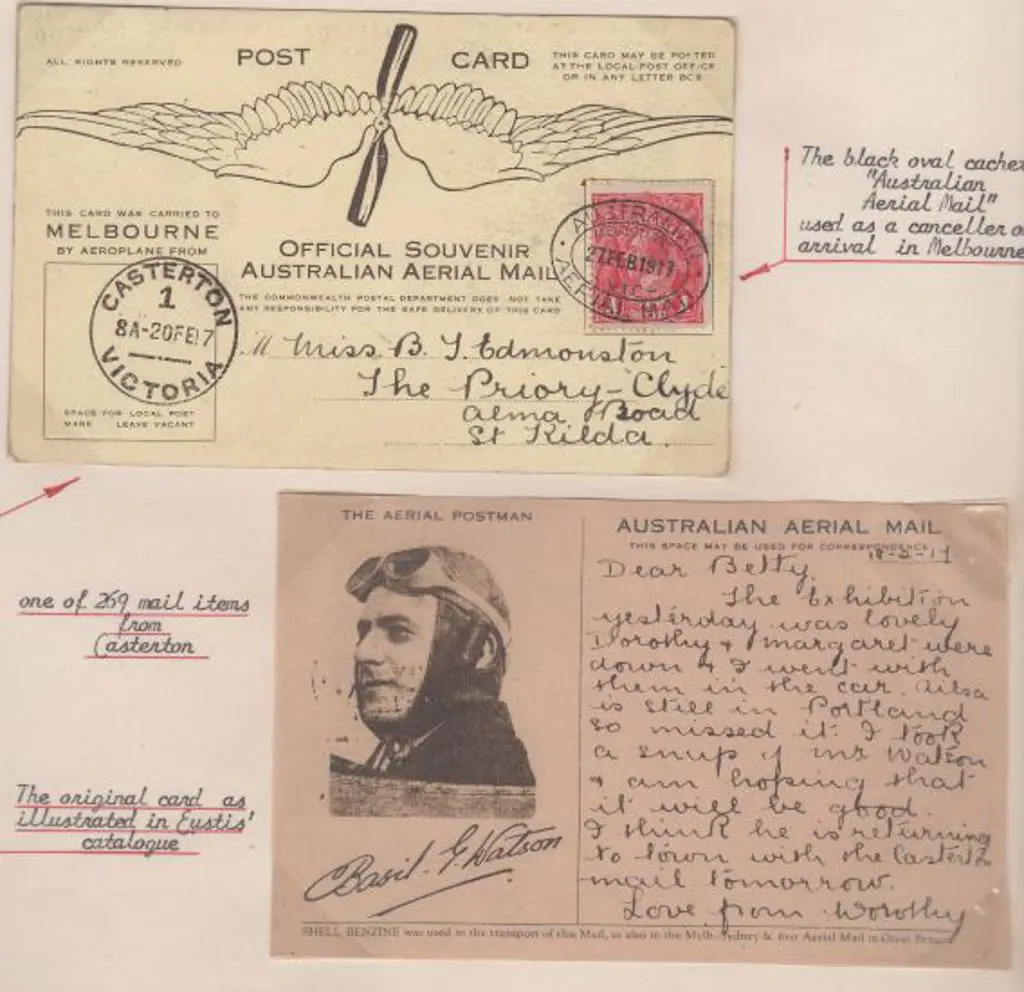 ALL RIGHTS RESERVED
POST CARD
THIS CARD MAY BE POSTED
AT THE LOCAL POST OFFICE
OR IN ANY LETTER BOX
THIS CARD WAS CARRIED TO
MELBOURNE
BY AEROPLANE FROM
CASTERTON
1
8A-20FE17
VICTORIA
SPACE FOR LOCAL POST
MARK LEAVE VACANT
OFFICIAL SOUVENIR
AUSTRALIAN AERIAL MAIL
THE COMMONWEALTH POSTAL DEPARTMENT DOES NOT TAKE
ANY RESPONSIBILITY FOR THE SAFE DELIVERY OF THIS CARD
AUSTRALIAN
27FEB1917
AERIAL MAIL
Miss B. I. Edmonston
The Priory-Clyde
Alma Road
St Kilda.
The black oval cache
"Australian
Aerial Mail"
used as a canceller o
arrival in Melbourne
one of 269 mail items
from
Casterton
The original card as
illustrated in Eustis'
catalogue
THE AERIAL POSTMAN
Basil. G. Watson
AUSTRALIAN AERIAL MAIL
THIS SPACE MAY BE USED FOR CORRESPONDENCE
18-2-17
Dear Betty,
The Exhibition
yesterday was lovely
Dorothy & Margaret were
down & I went with
them in the car. Ailsa
is still in Portland
so missed it. I took
a snap of Mr Watson
& am hoping that
it will be good.
I think he is returning
to town with the
mail tomorrow.
Love from Dorothy
SHELL BENZINE was used in the transport of this Mail, as also in the Melb. Sydney & first Aerial Mail in Great Britain